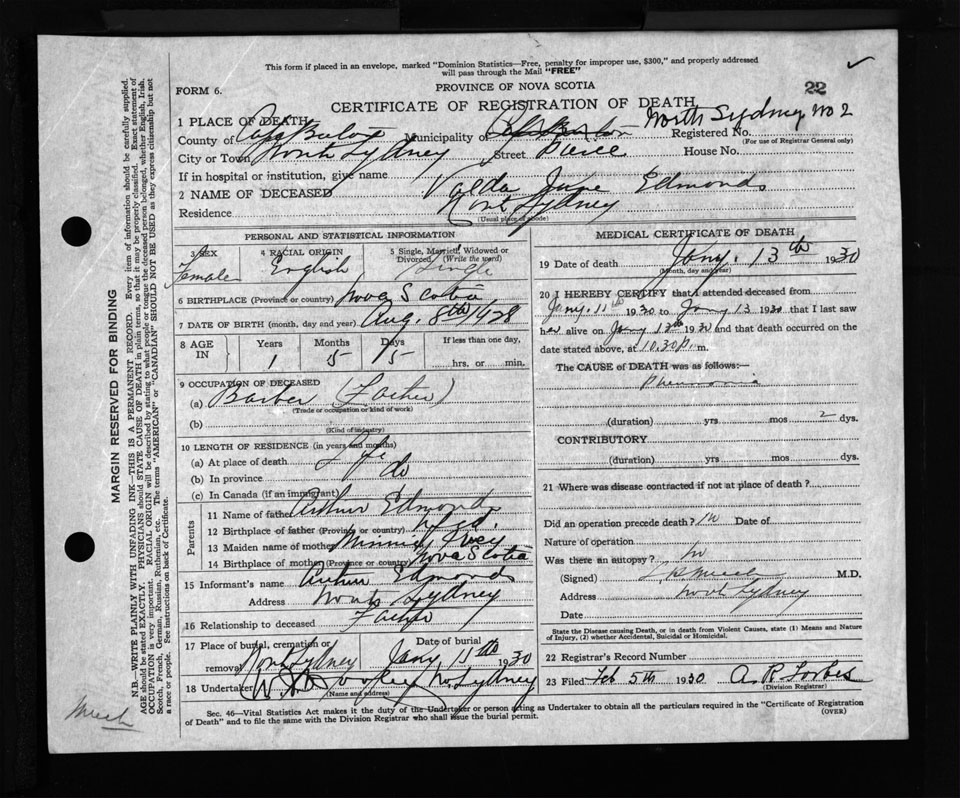 This form if placed in an envelope, marked "Dominion Statistics—Free, penalty for improper use, $300," and properly addressed
will pass through the Mail "FREE"
FORM 6.
PROVINCE OF NOVA SCOTIA
22
CERTIFICATE OF REGISTRATION OF DEATH
North Sydney No 2
1 PLACE OF DEATH
County of Cape Breton Municipality of Cape Breton Registered No.
(For use of Registrar General only)
City or Town North Sydney Street Pierce House No.
If in hospital or institution, give name
2 NAME OF DECEASED Valda June Edmonds
Residence North Sydney
(Usual place of abode)
PERSONAL AND STATISTICAL INFORMATION
3 SEX 4 RACIAL ORIGIN 5 Single, Married, Widowed or Divorced (Write the word)
Female English Single
6 BIRTHPLACE (Province or country) Nova Scotia
7 DATE OF BIRTH (month, day and year) Aug. 8th 1928
8 AGE IN Years Months Days If less than one day,
1 5 5 hrs. or min.
9 OCCUPATION OF DECEASED
(a) Barber (Father)
(Trade or occupation or kind of work)
(b)
(Kind of industry)
10 LENGTH OF RESIDENCE (in years and months)
(a) At place of death Life
(b) In province do
(c) In Canada (if an immigrant)
Parents
11 Name of father Arthur Edmonds
12 Birthplace of father (Province or country) Nfld.
13 Maiden name of mother Minnie Ivey
14 Birthplace of mother (Province or country) Nova Scotia
15 Informant's name Arthur Edmonds
Address North Sydney
16 Relationship to deceased Father
17 Place of burial, cremation or removal Date of burial
North Sydney Jany. 1930
18 Undertaker No. Sydney
(Name and address)
MEDICAL CERTIFICATE OF DEATH
19 Date of death Jany. 13th 1930
(Month, day and year)
20 I HEREBY CERTIFY that I attended deceased from
Jany. 11th 1930 to Jany 13 1930 that I last saw
her alive on Jany 1930 and that death occurred on the
date stated above, at 10.30 p. m.
The CAUSE OF DEATH was as follows:—
Pneumonia
(duration) yrs mos 2 dys.
CONTRIBUTORY
(duration) yrs mos dys.
21 Where was disease contracted if not at place of death?
Did an operation precede death? no Date of
Nature of operation
Was there an autopsy? no
(Signed) M.D.
Address North Sydney
Date
State the Disease causing Death, or in death from Violent Causes, state (1) Means and Nature
of Injury, (2) whether Accidental, Suicidal or Homicidal.
22 Registrar's Record Number
23 Filed Feb 5th 1930 A. R. Forbes
(Division Registrar)
Sec. 46—Vital Statistics Act makes it the duty of the Undertaker or person acting as Undertaker to obtain all the particulars required in the "Certificate of Registration
of Death" and to file the same with the Division Registrar who shall issue the burial permit.
(OVER)
MARGIN RESERVED FOR BINDING
N.B.—WRITE PLAINLY WITH UNFADING INK—THIS IS A PERMANENT RECORD. Every item of information should be carefully supplied.
AGE should be stated EXACTLY. PHYSICIANS should STATE CAUSE OF DEATH in plain terms, so that it may be properly classified. Exact statement of
OCCUPATION is very important. RACIAL ORIGIN will be described by stating to what people or tongue the deceased person belonged, whether English, Irish,
Scotch, French, German, Russian, Ruthenian, etc. The terms "AMERICAN" or "CANADIAN" SHOULD NOT BE USED as they express citizenship but not
a race or people. See instructions on back of Certificate.